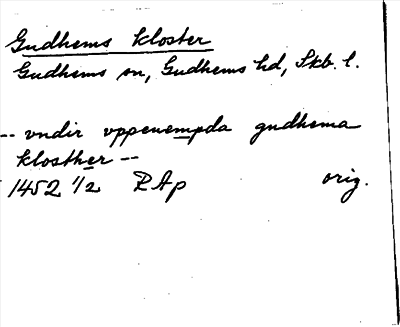 Gudhems kloster
Gudhems sn, Gudhems hd, Skb. l.
-- vndir vppenempda gudhema
klosther --
1452 1/2 RAp orig.